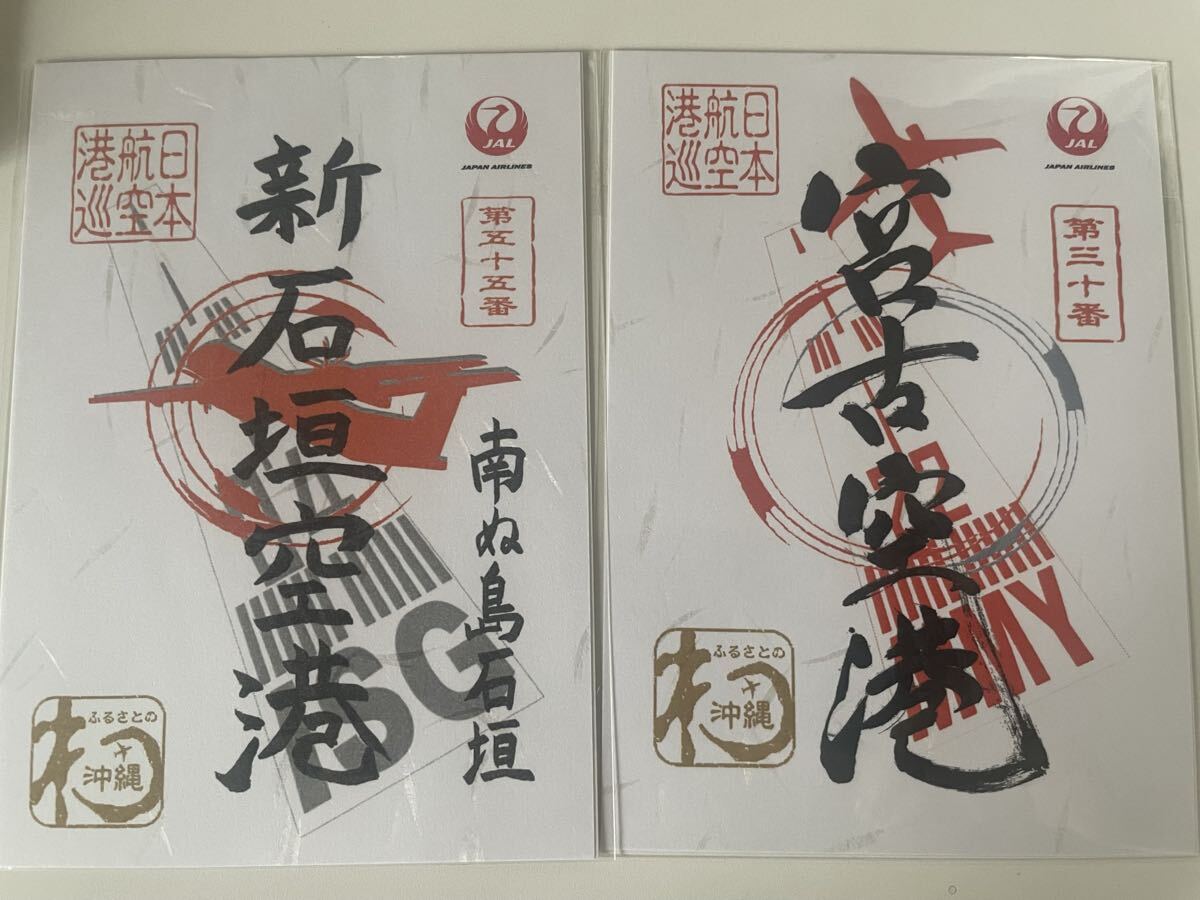 日本
航空
港巡
JAL
JAPAN AIRLINES
第五十五番
新石垣空港
南ぬ島石垣
ISG
ふるさとの
沖縄
日本
航空
港巡
JAL
JAPAN AIRLINES
第三十番
宮古空港
MMY
ふるさとの
沖縄